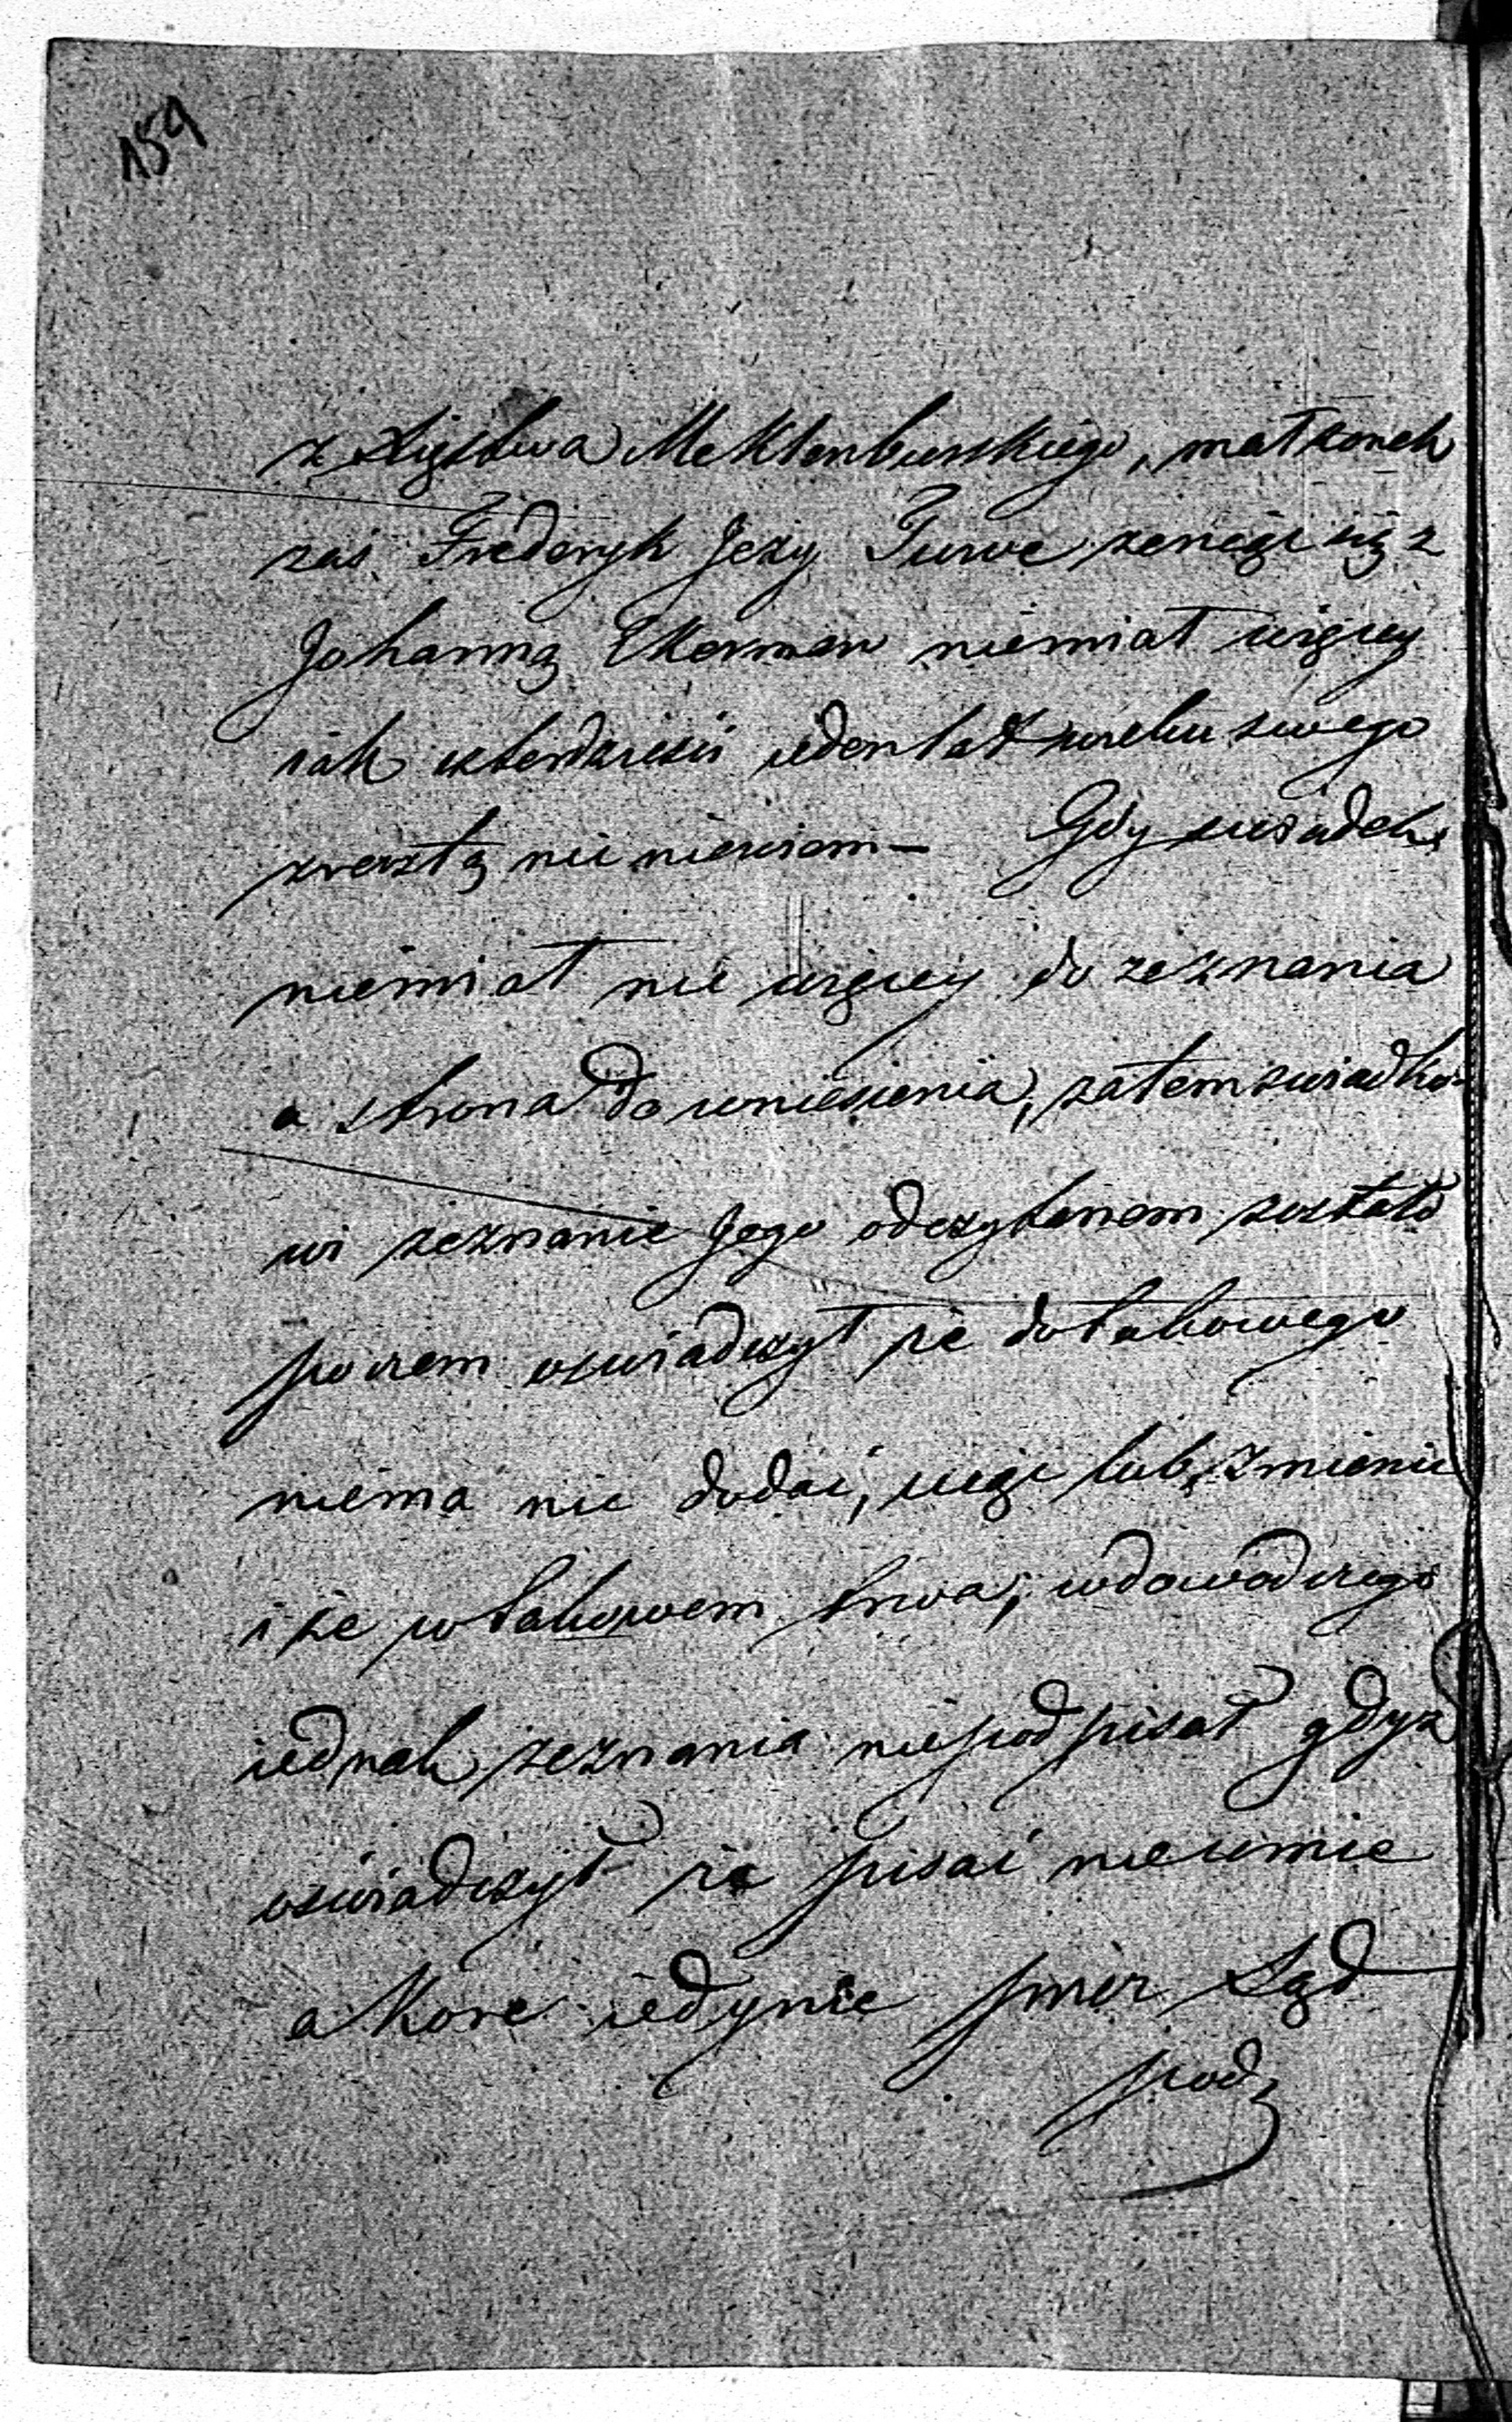 159
z Xięstwa Meklenburskiego, małżonek
zaś Frederyk Jerzy Turwe żeniąc się z
Johanną Ekerman niemiał więcey
iak czterdzieści ieden lat wieku swego
zresztą nic niewiem — Gdy świadek
niemiał nic więcey do zeznania
a strona do wniesienia, zatem świadko-
wi zeznanie Jego odczytanem zostało
poczem oświadczył że do takowego
niema nic dodać, uiąć lub zmienić
i że w takowem trwa, w dowód czego
iednak zeznania niepodpisał gdyż
oświadczył że pisać nieumie
a które iedynie przez Sąd
pod